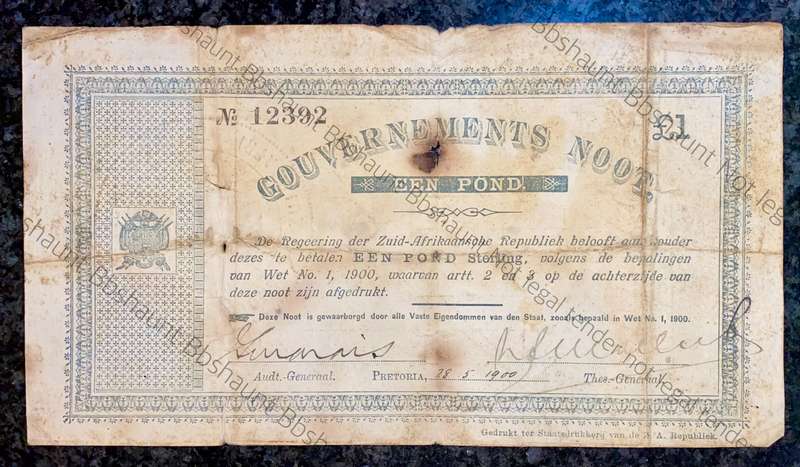 № 12392
£1
GOUVERNEMENTS NOOT.
EEN POND.
De Regeering der Zuid-Afrikaansche Republiek belooft aan houder
dezes te betalen EEN POND Sterling, volgens de bepalingen
van Wet No. 1, 1900, waarvan artt. 2 en 3 op de achterzijde van
deze noot zijn afgedrukt.
Deze Noot is gewaarborgd door alle Vaste Eigendommen van den Staat, zooals bepaald in Wet No. 1, 1900.
Audt.-Generaal. PRETORIA, 28 5 1900 Thes.-Generaal.
Gedrukt ter Staatsdrukkerij van de Z. A. Republiek.
Bbshaunt Bbshaunt Bbshaunt Not legal tender not legal tender